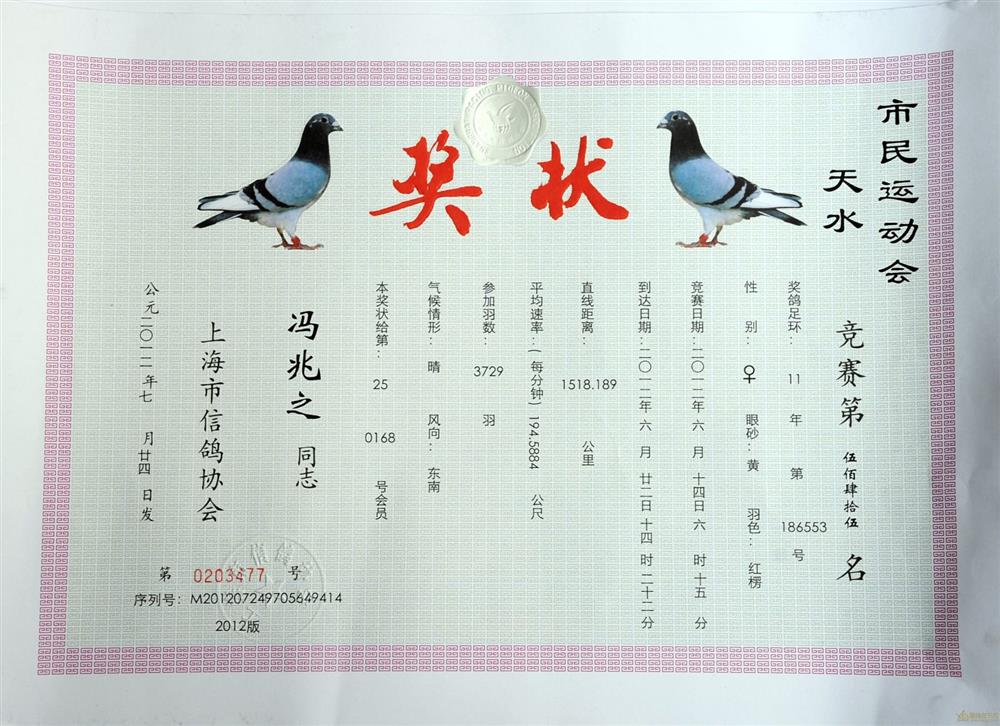 奖状
市民运动会
天水
竞赛第 伍佰肆拾伍 名
奖鸽足环：11 年 第 186553 号
性 别：♀ 眼砂：黄 羽色：红楞
竞赛日期：二〇一二年 六 月 十四日 六 时 十五 分
到达日期：二〇一二年 六 月 廿二日 十四 时 二十二 分
直线距离：1518.189 公里
平均速率：(每分钟) 194.5884 公尺
参加羽数：3729 羽
气候情形：晴 风向：东南
本奖状给第：25 0168 号会员
冯兆之 同志
上海市信鸽协会
公元二〇一二年七 月 廿四 日发
第 0203477 号
序列号：M201207249705649414
2012版